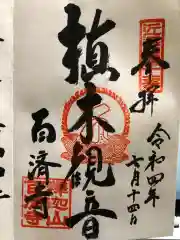 奉拝
令和四年
七月十四日
植木観音
百済寺